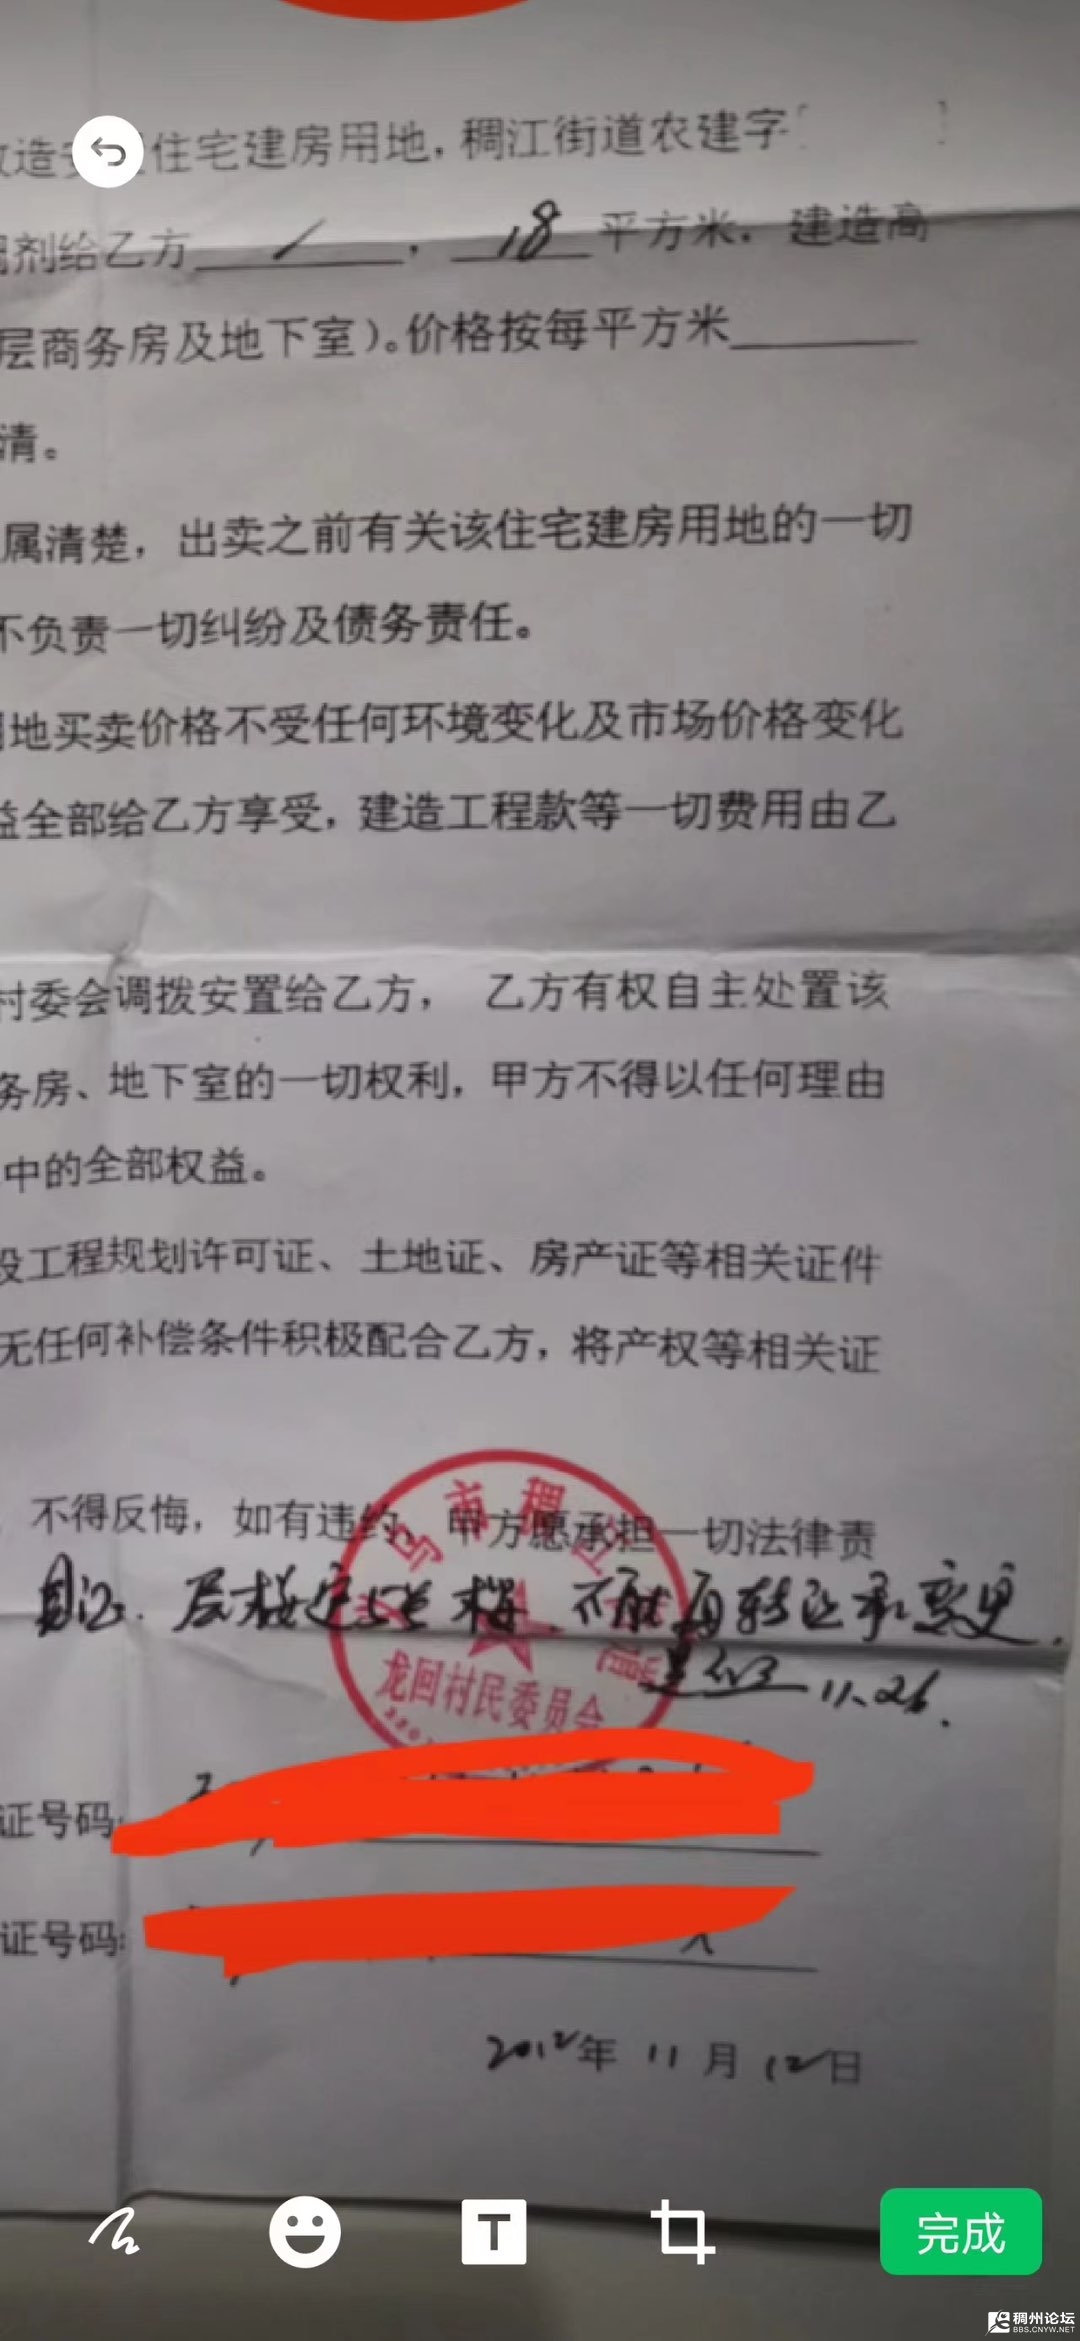 造
住宅建房用地，稠江街道农建字
剂给乙方 / ， 18 平方米。建造高
层商务房及地下室）。价格按每平方米
清。
属清楚，出卖之前有关该住宅建房用地的一切
不负责一切纠纷及债务责任。
地买卖价格不受任何环境变化及市场价格变化
益全部给乙方享受，建造工程款等一切费用由乙
村委会调拨安置给乙方， 乙方有权自主处置该
务房、地下室的一切权利，甲方不得以任何理由
中的全部权益。
设工程规划许可证、土地证、房产证等相关证件
无任何补偿条件积极配合乙方，将产权等相关证
不得反悔，如有违约，甲方愿承担一切法律责
市稠江
龙回村民委员会
不能再转让和变更.
11.26.
证号码：
证号码：
X
2012年 11 月 12 日
T
完成
稠州论坛
BBS.CNYW.NET